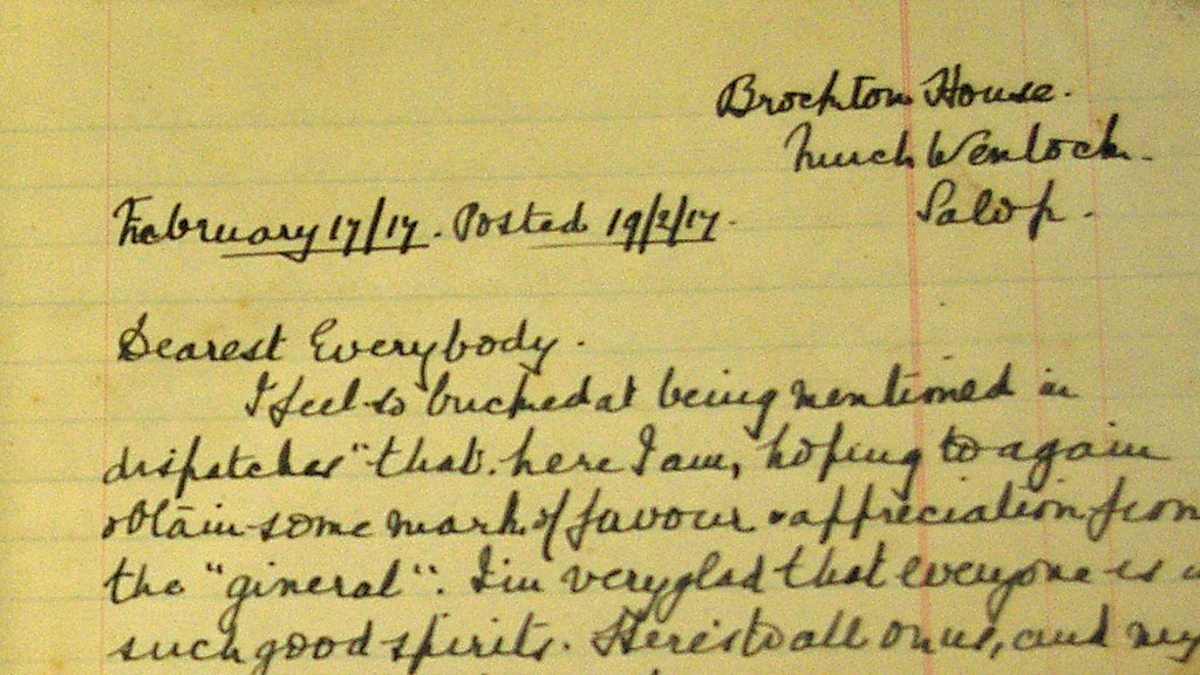 Brockton House.
Much Wenlock.
Salop.
February 17/17. Posted 19/2/17.
Dearest Everybody.
I feel so bucked at being mentioned in
dispatches" that here I am, hoping to again
obtain some mark of favour & appreciation from
the "gineral". I'm very glad that everyone is
such good spirits. Here's to all on us, and may